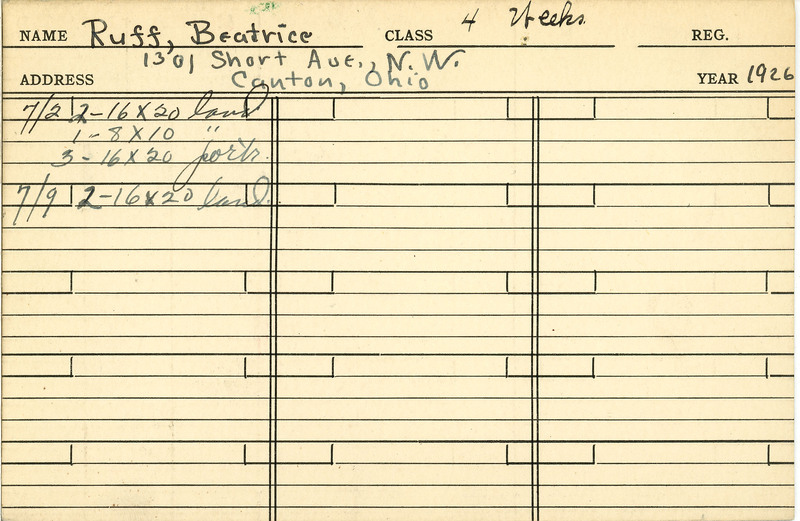 NAME Ruff, Beatrice CLASS 4 Weeks REG.
1301 Short Ave., N.W.
ADDRESS Canton, Ohio YEAR 1926
7/2 2-16X20 land
1-8X10 "
3-16X20 portr.
7/9 2-16X20 land.